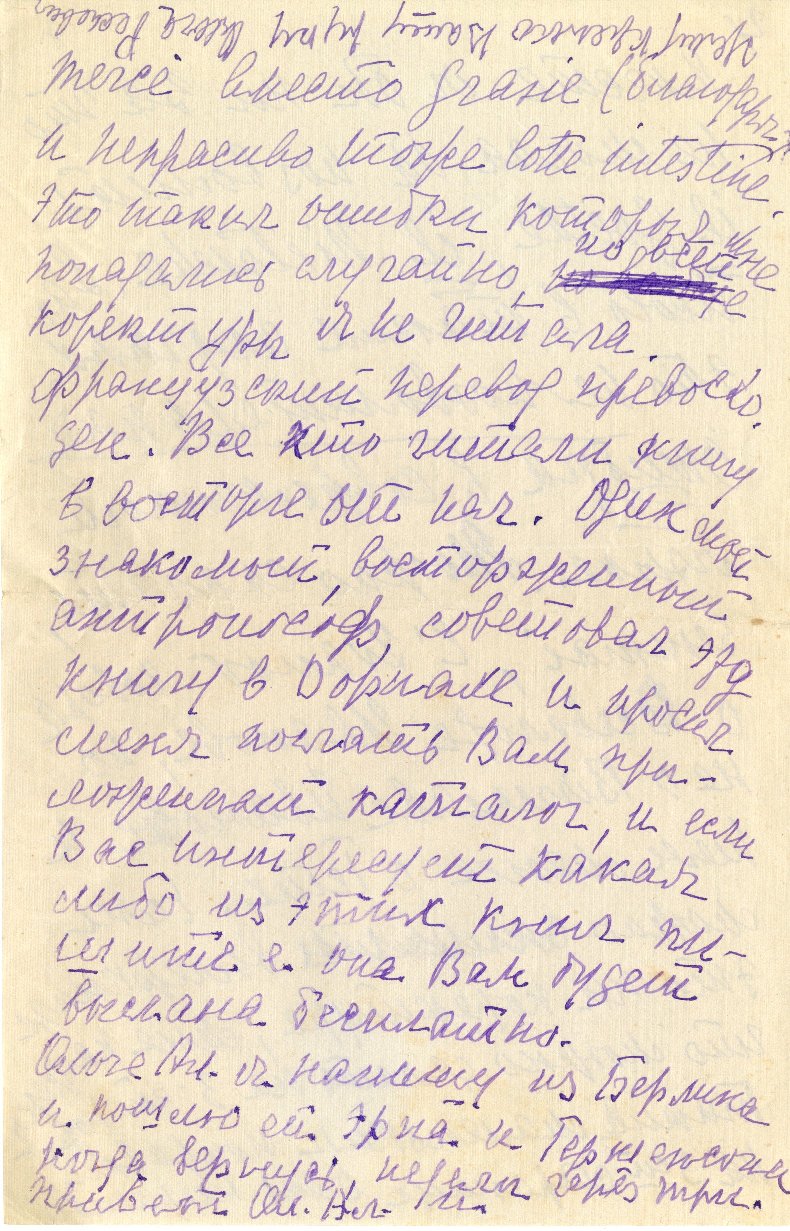 merci вместо grazie (благодарю)
и некрасиво тоже lotte intestine.
Это такия ошибки которыя мне
попадались случайно, по всей
коректуры я не читала.
Французский перевод превосхо-
ден. Все кто читали книгу
в восторге от нея. Один мой
знакомый, восторженный
антропософ, советовал эту
книгу в Dорнахе и просил
меня послать Вам при-
ложенный каталог, и если
Вас интересует какая
либо из этих книг пи-
шите и она Вам будет
выслана бесплатно.
Ольге Ал. я напишу из Берлина
и пошлю ей Эрна и Гершензона
когда вернусь, недели через три.
Привет Ол. Ал. и
жму крепко Вашу руку Ольга